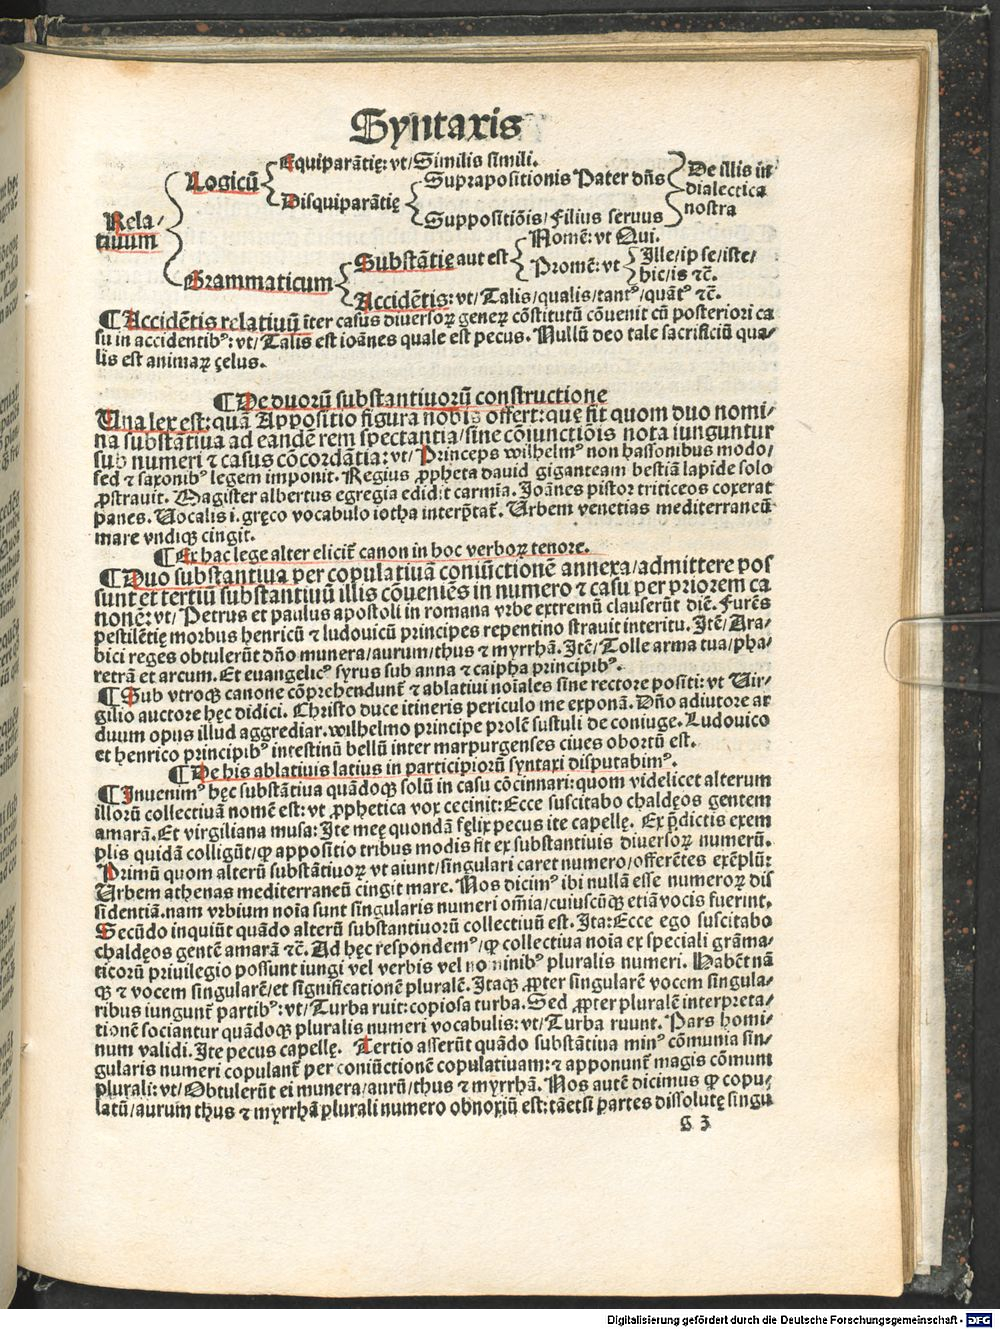 Syntaxis
Equiparātię: vt/Similis simili.
Logicū
Disquiparātię
Suprapositionis Pater dn̄s
Suppositiōis/Filius seruus
De illis in
dialectica
nostra
Rela-
tiuum
Grammaticum
Substātię aut est
Nomē: vt Qui.
Pronomē: vt
Ille/ipse/iste/
hic/is ⁊c̄.
Accidētis: vt/Talis/qualis/tantꝰ/quātꝰ ⁊c̄.
¶ Accidētis relatiuū īter casus diuersoꝝ geneꝝ cōstitutū cōuenit cū posteriori ca
su in accidentibꝰ: vt/Talis est ioānes quale est pecus. Nullū deo tale sacrificiū qua/
lis est animaꝝ çelus.
¶ De duorū substantiuorū constructione
Una lex est: quā Appositio figura nobis offert: quę fit quom duo nomi/
na substātiua ad eandē rem spectantia/sine cōiunctiōis nota iunguntur
sub numeri ⁊ casus cōcordātia: vt/Princeps wilhelmꝰ non hassonibus modo/
sed ⁊ saxonibꝰ legem imponit. Regius ꝓpheta dauid giganteam bestiā lapide solo
ꝓstrauit. Magister albertus egregia edidit carmīa. Joānes pistor triticeos coxerat
panes. Vocalis i. gręco vocabulo iotha interp̄tat᷑. Urbem venetias mediterraneū
mare vndiqꝫ cingit.
¶ Ex hac lege alter elicit᷑ canon in hoc verboꝝ tenore.
¶ Duo substantiua per copulatiuā coniūctionē annexa/admittere pos
sunt et tertiū substantiuū illis cōueniēs in numero ⁊ casu per priorem ca
nonē: vt/Petrus et paulus apostoli in romana vrbe extremū clauserūt diē. Furēs
pestilētię morbus henricū ⁊ ludouicū principes repentino strauit interitu. Itē/Ara/
bici reges obtulerūt dn̄o munera/aurum/thus ⁊ myrrhā. Itē/Tolle arma tua/pha/
retrā et arcum. Et euangelicꝰ syrus sub anna ⁊ caipha principibꝰ.
¶ Sub vtroqꝫ canone cōprehendunt᷑ ⁊ ablatiui noīales sine rectore positi: vt Vir/
gilio auctore hęc didici. Christo duce itineris periculo me exponā. Dn̄o adiutore ar
duum opus illud aggrediar. wilhelmo principe prolē sustuli de coniuge. Ludouico
et henrico principibꝰ intestinū bellū inter marpurgenses ciues obortū est.
¶ De his ablatiuis latius in participiorū syntaxi disputabimꝰ.
¶ Inuenimꝰ hęc substātiua quādoqꝫ solū in casu cōcinnari: quom videlicet alterum
illorū collectiuā nomē est: vt ꝓphetica vox cecinit: Ecce suscitabo chaldęos gentem
amarā. Et virgiliana musa: Ite meę quondā fęlix pecus ite capellę. Ex p̄dictis exem
plis quidā colligūt/ꝙ appositio tribus modis fit ex substantiuis diuersoꝝ numerū.
Primū quom alterū substātiuoꝝ vt aiunt/singulari caret numero/offerētes exēplū:
Urbem athenas mediterraneū cingit mare. Nos dicimꝰ ibi nullā esse numeroꝝ dis
sidentiā. nam vrbium noīa sunt singularis numeri om̄ia/cuiuscūqꝫ etiā vocis fuerint.
Secūdo inquiūt quādo alterū substantiuorū collectiuū est. Ita: Ecce ego suscitabo
chaldęos gentē amarā ⁊c̄. Ad hęc respondemꝰ/ꝙ collectiua noīa ex speciali grāma/
ticorū priuilegio possunt iungi vel verbis vel nominibꝰ pluralis numeri. Habēt nā
qꝫ ⁊ vocem singularē/et significationē pluralē. Itaqꝫ ꝓpter singularē vocem singula/
ribus iungunt᷑ partibꝰ: vt/Turba ruit: copiosa turba. Sed ꝓpter pluralē interpreta/
tionē sociantur quādoqꝫ pluralis numeri vocabulis: vt/Turba ruunt. Pars homi/
num validi. Ite pecus capellę. Tertio asserūt quādo substātiua minꝰ cōmunia sin/
gularis numeri copulant᷑ per coniūctionē copulatiuam: ⁊ apponunt᷑ magis cōmuni
plurali: vt/Obtulerūt ei munera/aurū/thus ⁊ myrrhā. Nos autē dicimus ꝙ copu/
latū/aurum thus ⁊ myrrhā plurali numero obnoxiū est: tāetsi partes dissolutę singu